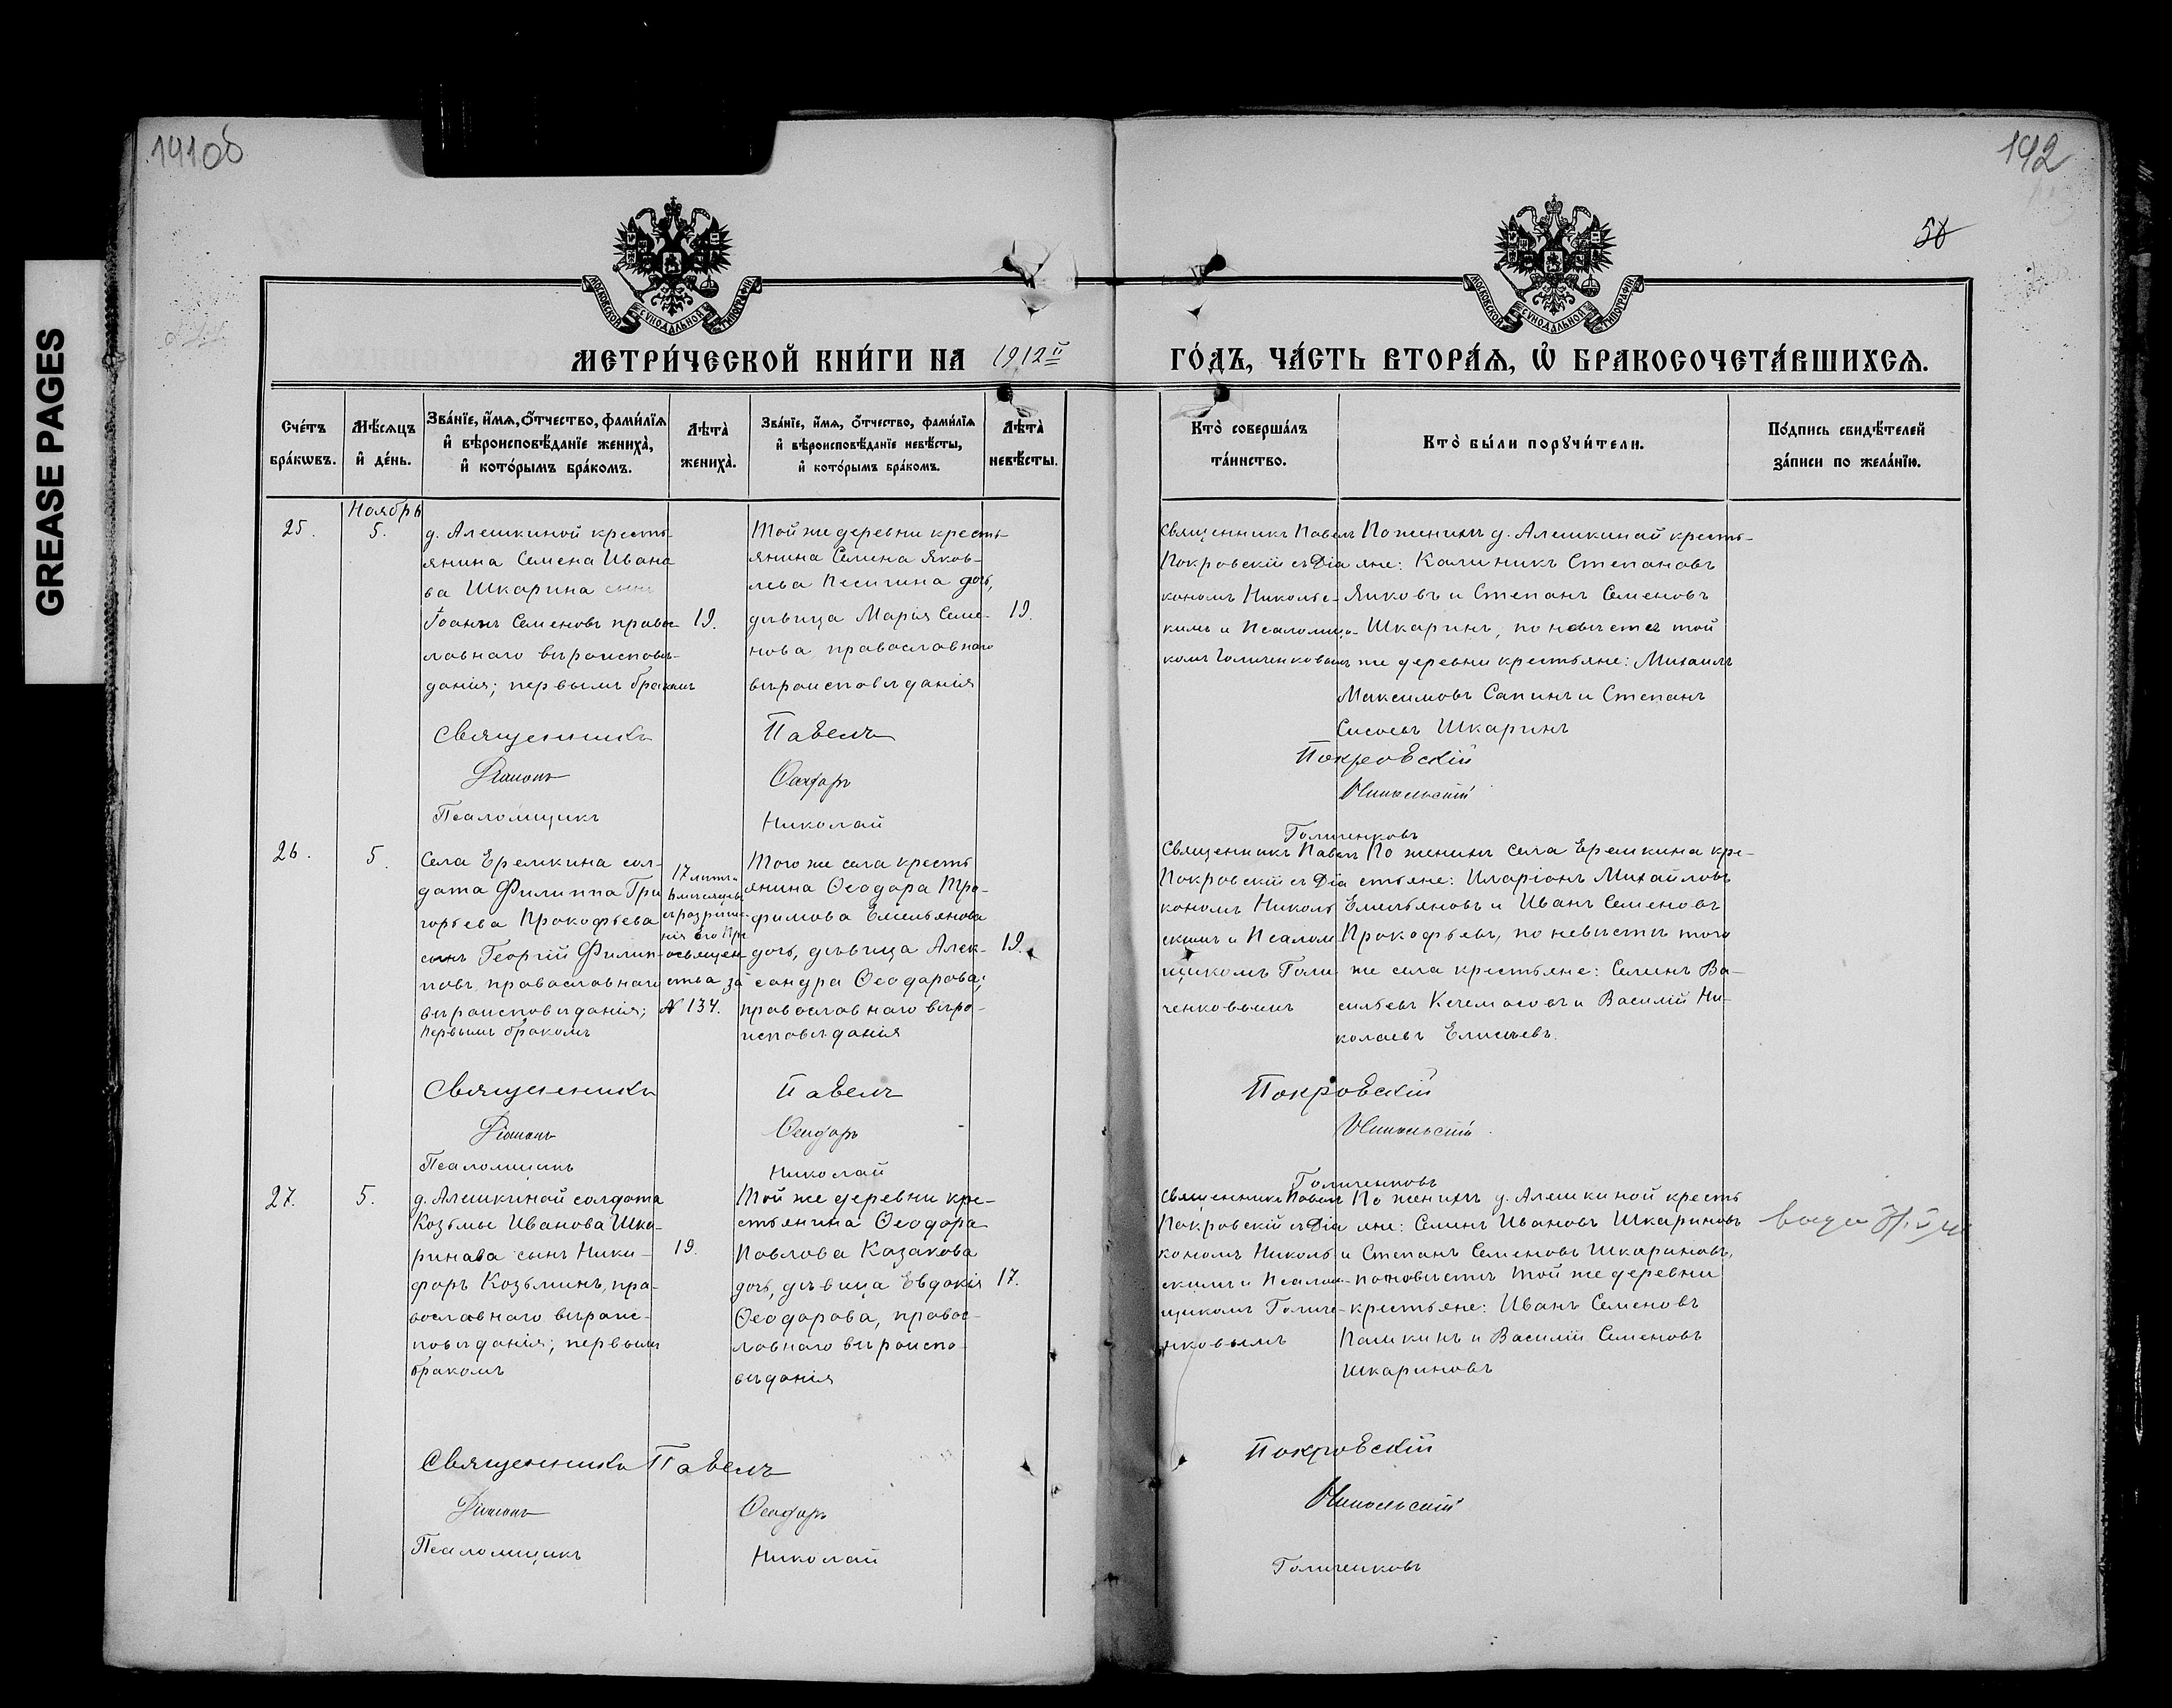 191об
192
58
GREASE PAGES
МОСКОВСКОЙ СѴНОДАЛЬНОЙ ТИПОГРАФІИ
МОСКОВСКОЙ СѴНОДАЛЬНОЙ ТИПОГРАФІИ
МЕТРИ́ЧЕСКОЙ КНИ́ГИ НА 1912й ГО́ДЪ, ЧА́СТЬ ВТОРА́Ѧ, Ѡ҆ БРАКОСОЧЕТА́ВШИХСѦ.
Сче́тъ бра́кѡвъ.
Мѣ́сѧцъ и҆ де́нь.
Зва́нїе, и҆́мѧ, ѻ҆́тчество, фами́лїѧ и҆ вѣроисповѣ́данїе жениха̀, и҆ кото́рымъ бра́комъ.
Лѣта̀ жениха̀.
Зва́нїе, и҆́мѧ, ѻ҆́тчество, фами́лїѧ и҆ вѣроисповѣ́данїе невѣ́сты, и҆ кото́рымъ бра́комъ.
Лѣта̀ невѣ́сты.
Кто̀ соверша́лъ та́инство.
Кто̀ бы́ли порꙋчи́тели.
По́дпись свидѣ́телей за́писи по жела́нїю.
Ноябрь
25.
5.
д. Алешкиной кресть-
янина Семена Ивано
ва Шкарина сынъ
Іоаннъ Семеновъ правос-
лавнаго вѣроисповѣ-
данія; первымъ бракомъ
19.
Той же деревни кресть-
янина Семена Яков-
лева Песигина дочь,
дѣвица Марія Семе-
нова православнаго
вѣроисповѣданія
19.
Священникъ Павелъ
Покровскій съ Діа
кономъ Никольс-
кимъ и Псаломщи-
комъ Голиченковымъ
По женихѣ д. Алешкиной кресть-
яне: Калиникъ Степановъ
Яиковъ и Степанъ Семеновъ
Шкаринъ, по невѣстѣ той
же деревни крестьяне: Михаилъ
Максимовъ Сапинъ и Степанъ
Сысоевъ Шкаринъ
Священникъ Павелъ Покровскій
Діаконъ Ѳеодоръ Никольскій
Псаломщикъ Николай Голиченковъ
26.
5.
Села Еремкина сол-
дата Филиппа Гри
горьева Прокофьева
сынъ Георгій Филип-
повъ православнаго
вѣроисповѣданія;
первымъ бракомъ
17 лѣтъ и
6 мѣсяцевъ
съ разрѣше-
нія Его Пре
освящен-
ства за
№ 134.
Того же села кресть
янина Ѳеодора Тро-
фимова Емельянова
дочь, дѣвица Алек-
сандра Ѳеодорова;
православнаго вѣро-
исповѣданія
19.
Священникъ Павелъ
Покровскій съ Діа
кономъ Николь
скимъ и Псалом
щикомъ Голи
ченковымъ
По женихѣ села Еремкина кре-
стьяне: Иларіонъ Михайловъ
Емельяновъ и Иванъ Семеновъ
Прокофьевъ, по невѣстѣ того
же села крестьяне: Семенъ Ва-
сильевъ Кечемасовъ и Василій Ни-
колаевъ Елисѣевъ.
Священникъ Павелъ Покровскій
Діаконъ Ѳеодоръ Никольскій
Псаломщикъ Николай Голиченковъ
27.
5.
д. Алешкиной солдата
Козьмы Иванова Шка-
ринова сынъ Ники-
форъ Козьминъ, пра-
вославнаго вѣроис-
повѣданія; первымъ
бракомъ
19.
Той же деревни кре-
стьянина Ѳеодора
Павлова Казакова
дочь, дѣвица Евдокія
Ѳеодорова, правос-
лавнаго вѣроиспо
вѣданія
17.
Священникъ Павелъ
Покровскій съ Діа
кономъ Николь
скимъ и Псалом-
щикомъ Голиче-
нковымъ
По женихѣ д. Алешкиной кресть
яне: Семенъ Ивановъ Шкариновъ
и Степанъ Семеновъ Шкариновъ,
по невѣстѣ той же деревни
крестьяне: Иванъ Семеновъ
Пашкинъ и Василій Семеновъ
Шкариновъ
Священникъ Павелъ Покровскій
Діаконъ Ѳеодоръ Никольскій
Псаломщикъ Николай Голиченковъ